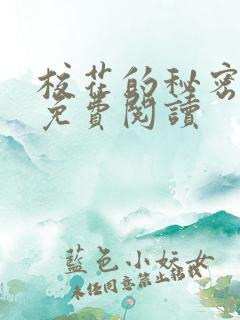 校花的秘密
免費閱讀
藍色小妖女
未經同意禁止轉載